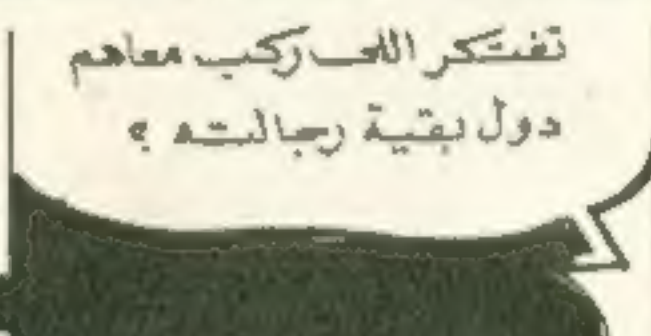 تفتكر اللى ركب معاهم
دول بقية رجالته ؟